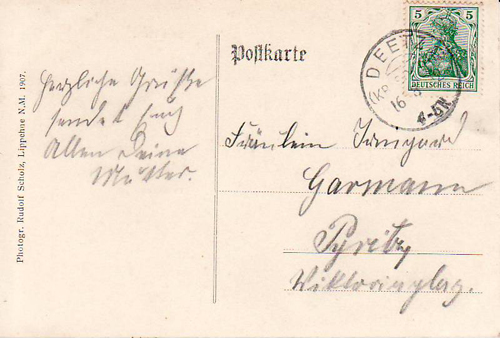 Postkarte
5 5
DEUTSCHES REICH
DEETZ
16
4-5N
Herzliche Grüße
sendet Euch
Allen Deine
Mutter.
Fräulein Irmgard
Garmann
Pyritz
Viktoriaplatz.
Photogr. Rudolf Scholz, Lippehne N.M. 1907.